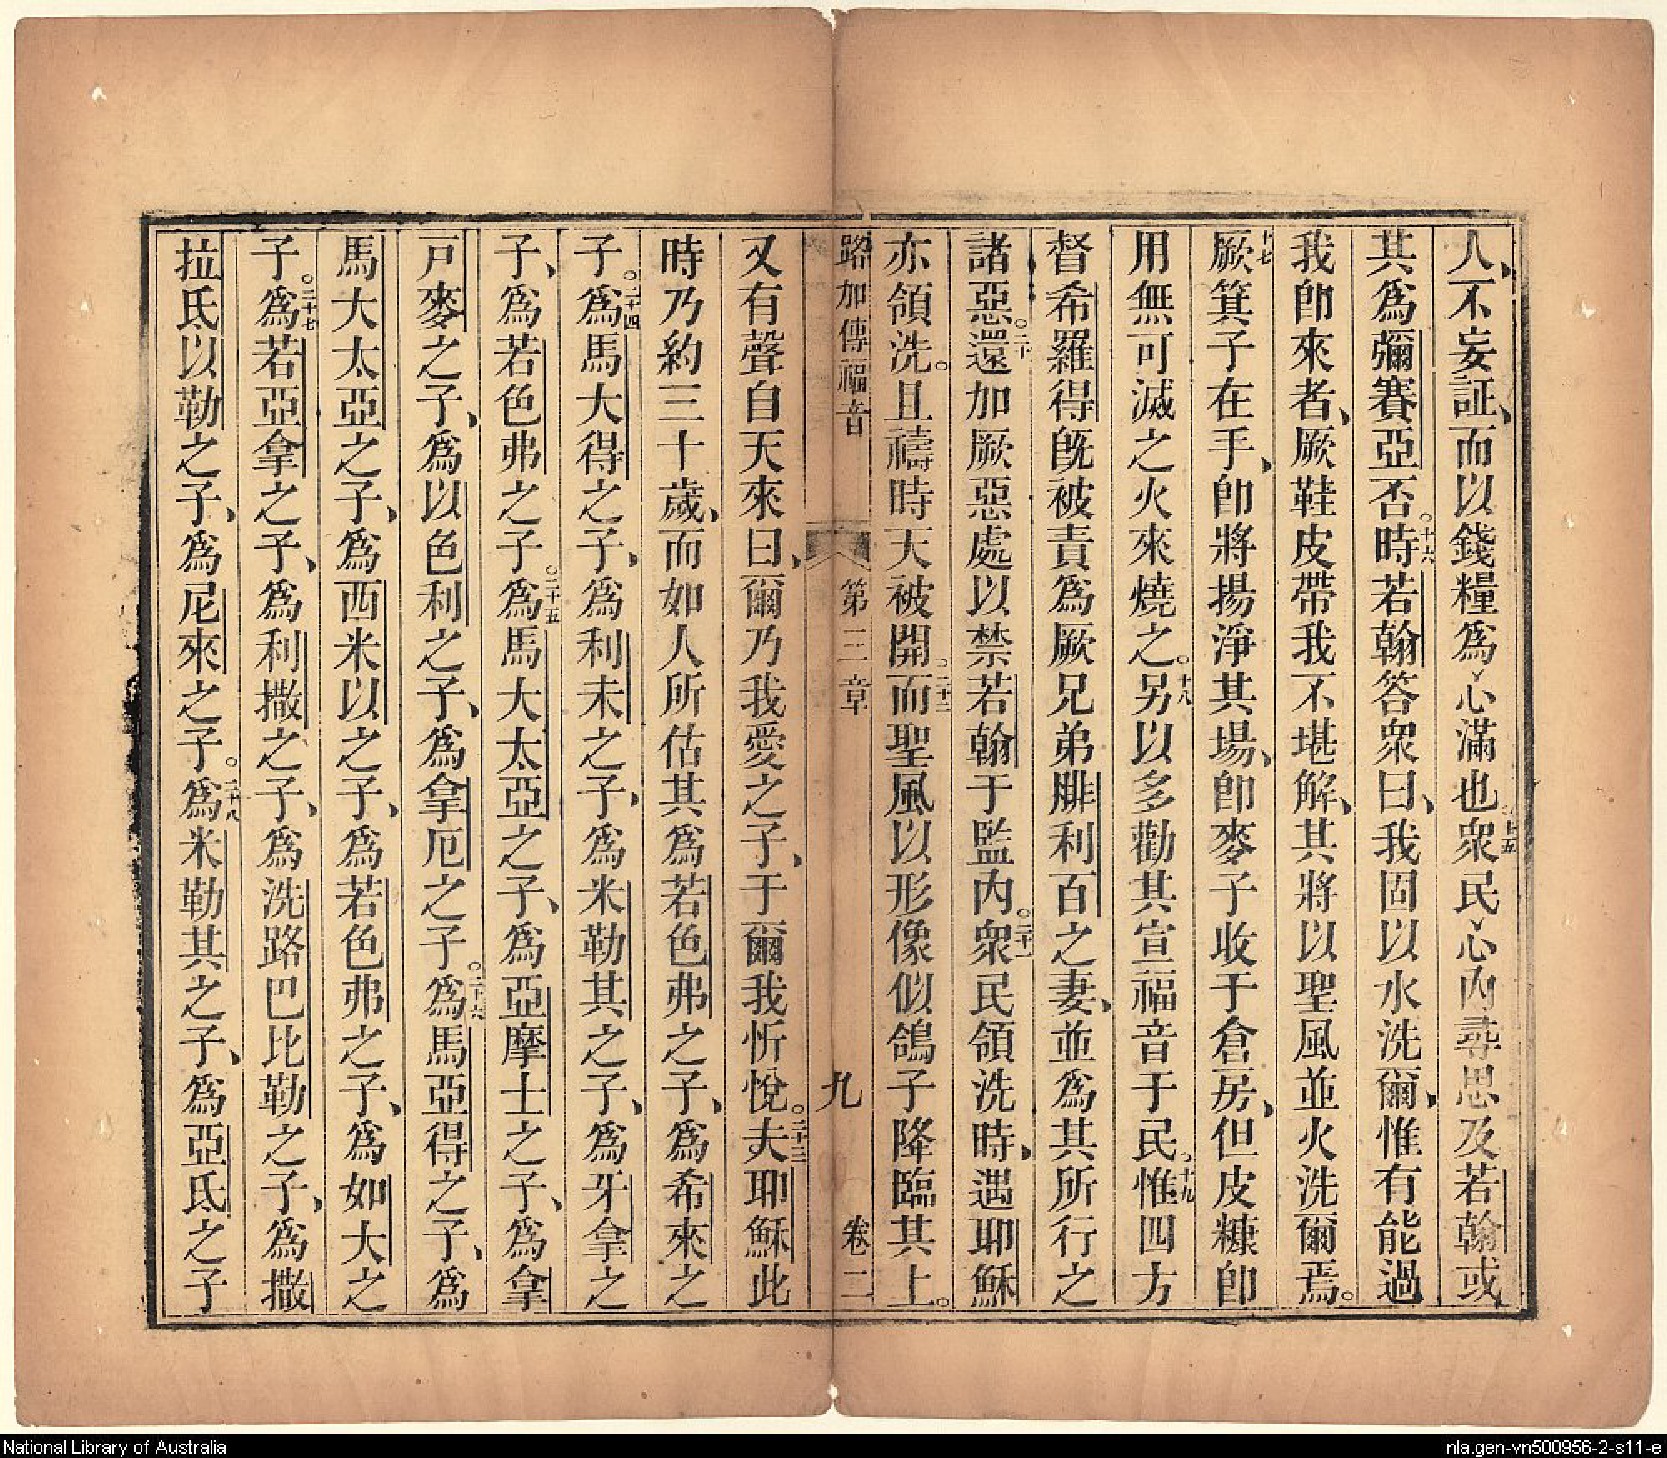 人、不妄証、而以錢糧為心滿也。十五衆民心內尋思及若翰或
其為彌賽亞否。十六時若翰答衆曰、我固以水洗爾、惟有能過
我卽來者、厥鞋皮帶我不堪解、其將以聖風並火洗爾焉。
十七厥箕子在手、卽將揚淨其場、卽麥子收于倉房、但皮糠卽
用無可滅之火來燒之。十八另以多勸其宣福音于民。十九惟四方
督希羅得旣被責為厥兄弟腓利百之妻、並為其所行之
諸惡。二十還加厥惡處以禁若翰于監內。二十一衆民領洗時、遇耶穌
亦領洗。且禱時天被開。二十二而聖風以形像似鴿子降臨其上。
路加傳福音 第三章 九 卷二
又有聲自天來曰、爾乃我愛之子、于爾我忻悅。二十三夫耶穌此
時乃約三十歲、而如人所估其為若色弗之子、為希來之
子。二十四為馬大得之子、為利未之子、為米勒其之子、為牙拿之
子、為若色弗之子。二十五為馬大太亞之子、為亞摩士之子、為拿
戸麥之子、為以色利之子、為拿厄之子。二十六為馬亞得之子、為
馬大太亞之子、為西米以之子、為若色弗之子、為如大之
子。二十七為若亞拿之子、為利撒之子、為洗路巴比勒之子、為撒
拉氐以勒之子、為尼來之子。二十八為米勒其之子、為亞氐之子
National Library of Australia
nla.gen-vn500956-2-s11-e